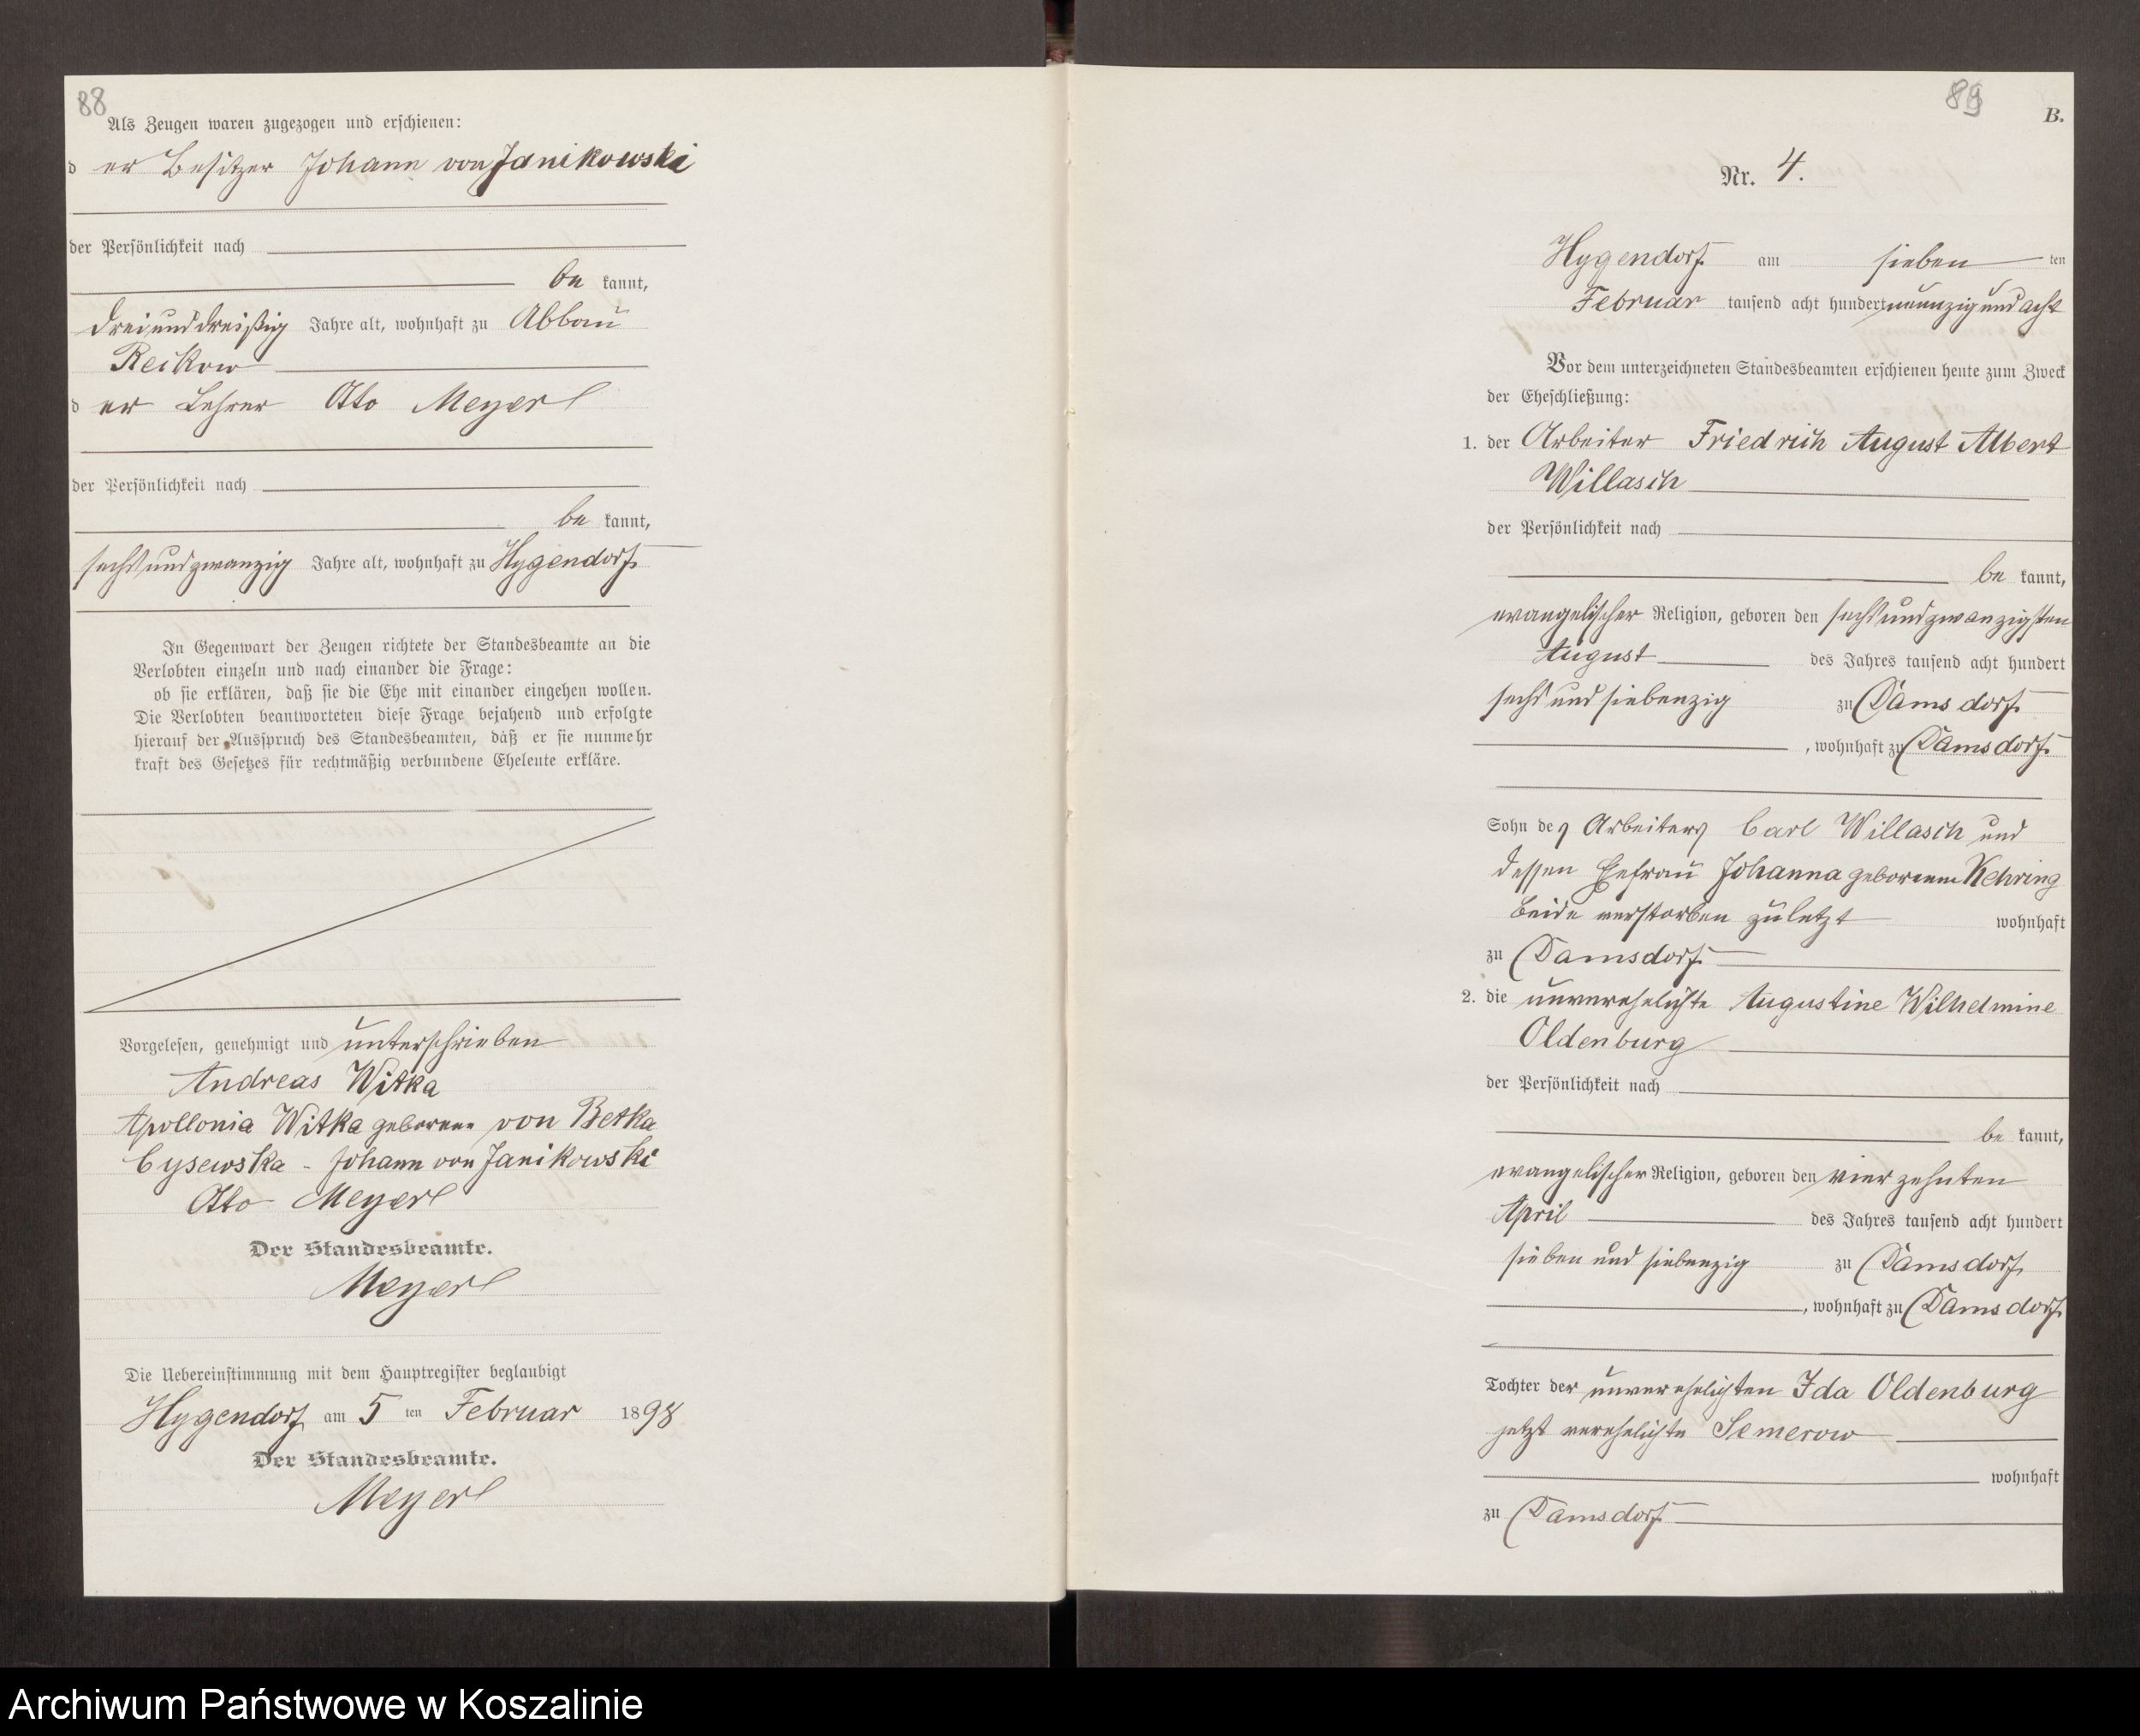 88
Als Zeugen waren zugezogen und erschienen:
d er Besitzer Johann von Janikowski
der Persönlichkeit nach
be kannt,
dreiunddreißig Jahre alt, wohnhaft zu Abbau
Reckow
d er Lehrer Otto Meyerl
der Persönlichkeit nach
be kannt,
sechsundzwanzig Jahre alt, wohnhaft zu Hygendorf
In Gegenwart der Zeugen richtete der Standesbeamte an die
Verlobten einzeln und nach einander die Frage:
ob sie erklären, daß sie die Ehe mit einander eingehen wollen.
Die Verlobten beantworteten diese Frage bejahend und erfolgte
hierauf der Ausspruch des Standesbeamten, daß er sie nunmehr
kraft des Gesetzes für rechtmäßig verbundene Eheleute erkläre.
Vorgelesen, genehmigt und unterschrieben
Andreas Witka
Apollonia Witka geborene von Betka
Cysewska - Johann von Janikowski
Otto Meyerl
Der Standesbeamte.
Meyerl
Die Uebereinstimmung mit dem Hauptregister beglaubigt
Hygendorf am 5 ten Februar 1898
Der Standesbeamte.
Meyerl
89
B.
Nr. 4.
Hygendorf am sieben ten
Februar tausend acht hundert neunzig und acht
Vor dem unterzeichneten Standesbeamten erschienen heute zum Zweck
der Eheschließung:
1. der Arbeiter Friedrich August Albert
Willasch
der Persönlichkeit nach
be kannt,
evangelischer Religion, geboren den sechsundzwanzigsten
August des Jahres tausend acht hundert
sechs und siebenzig zu Damsdorf
, wohnhaft zu Damsdorf
Sohn des Arbeiters Carl Willasch und
dessen Ehefrau Johanna geborenen Kehring
beide verstorben zuletzt wohnhaft
zu Damsdorf
2. die unverehelichte Augustine Wilhelmine
Oldenburg
der Persönlichkeit nach
be kannt,
evangelischer Religion, geboren den vierzehnten
April des Jahres tausend acht hundert
sieben und siebenzig zu Damsdorf
, wohnhaft zu Damsdorf
Tochter der unverehelichten Ida Oldenburg
jetzt verehelichte Semerow
wohnhaft
zu Damsdorf
Archiwum Państwowe w Koszalinie